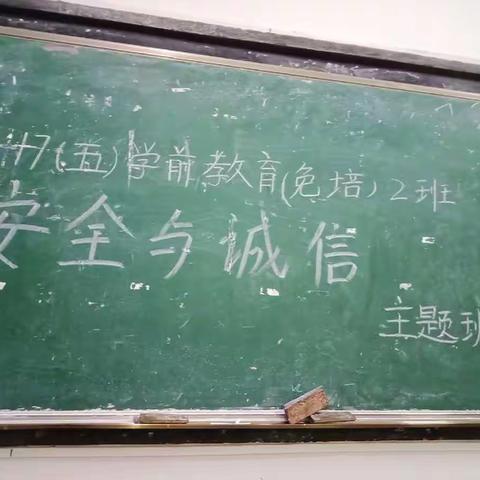 7(五)学前教育(免培)2班
安全与诚信
主题班